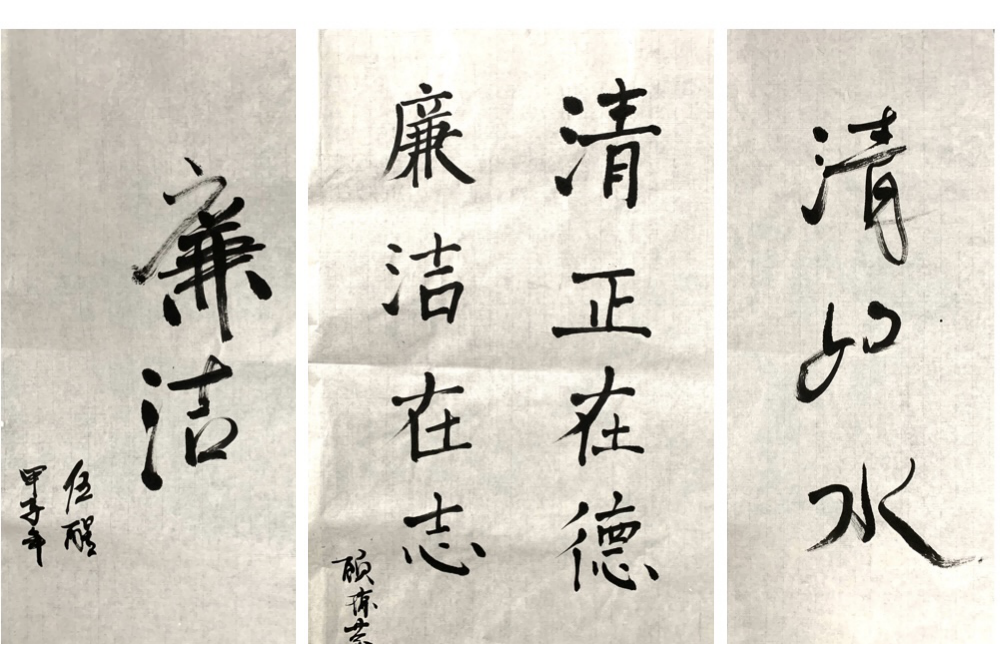 廉洁
伍醒
甲子年
清正在德
廉洁在志
清如水